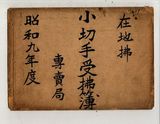 在地拂
小切手受拂簿
專賣局
昭和九年度